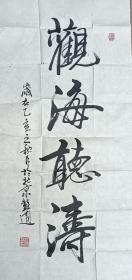 觀海聽濤
歲在乙亥之秋月於北京